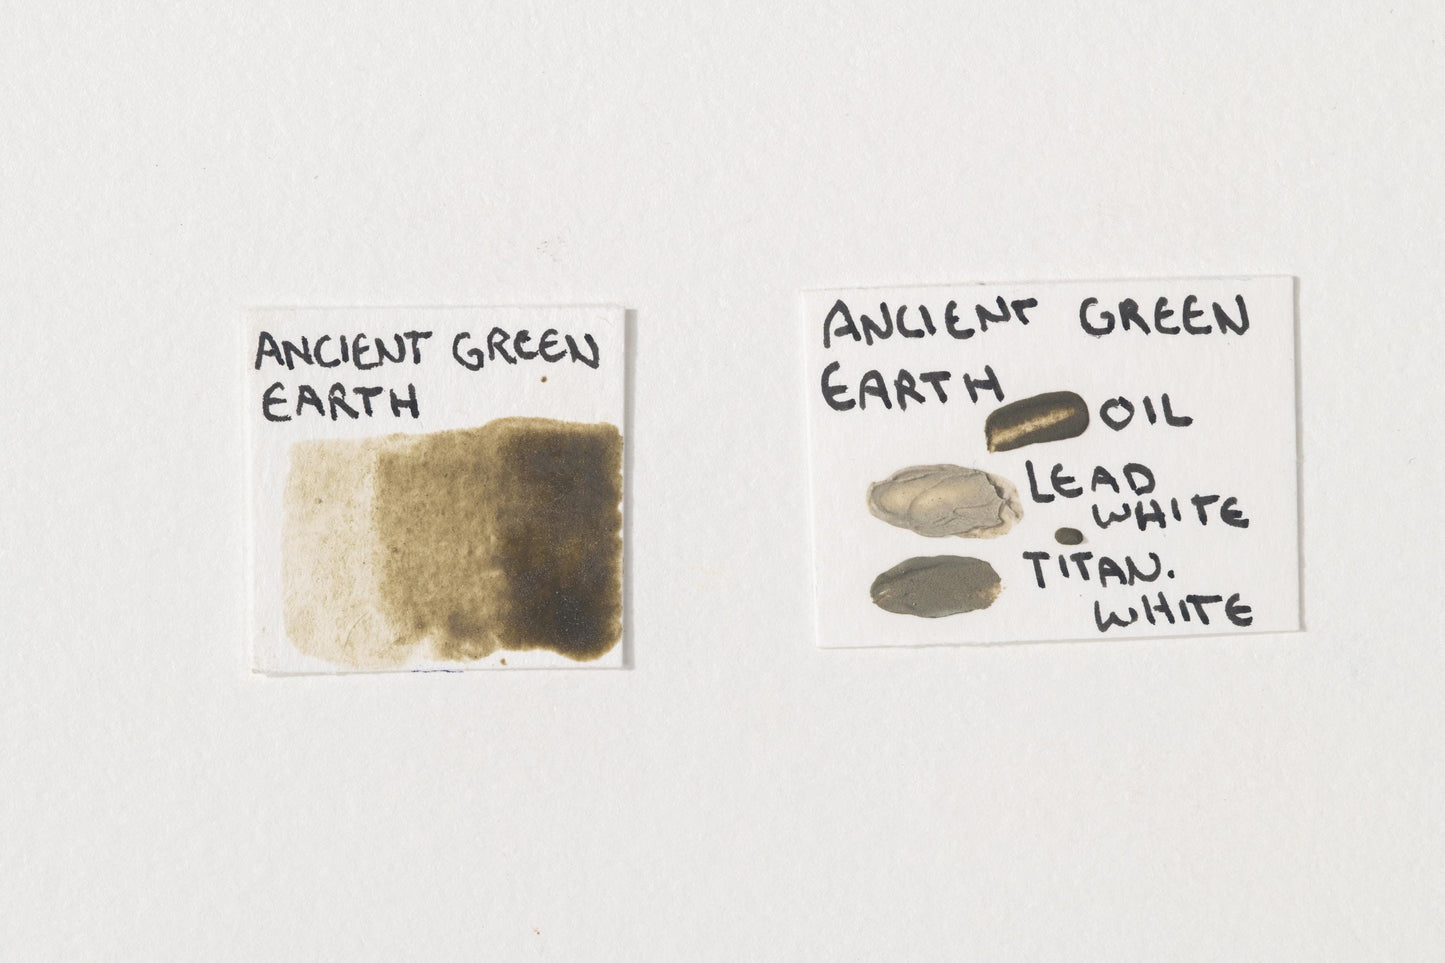 ANCIENT GREEN
EARTH
ANCIENT GREEN
EARTH
OIL
LEAD
WHITE
TITAN.
WHITE